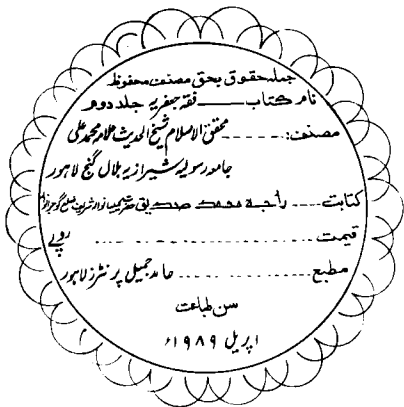 جملہ حقوق بحق مصنف محفوظ
نام کتاب ــــــ فقہ جعفریہ جلد دوم
مصنف:۔۔۔۔۔ محقق الاسلام شیخ الحدیث علامہ محمد علی
جامعہ رسولیہ شیرازیہ بلال گنج لاہور
کتابت۔۔۔۔ راجہ محمد صدیق حضرت کیلیانوالہ شریف ضلع گوجرانوالہ
قیمت ۔۔۔۔۔۔۔۔۔۔۔۔۔۔۔۔ روپے
مطبع ۔۔۔۔۔۔۔۔۔ حامد جمیل پرنٹرز لاہور
سن طباعت
اپریل ۱۹۸۹ء